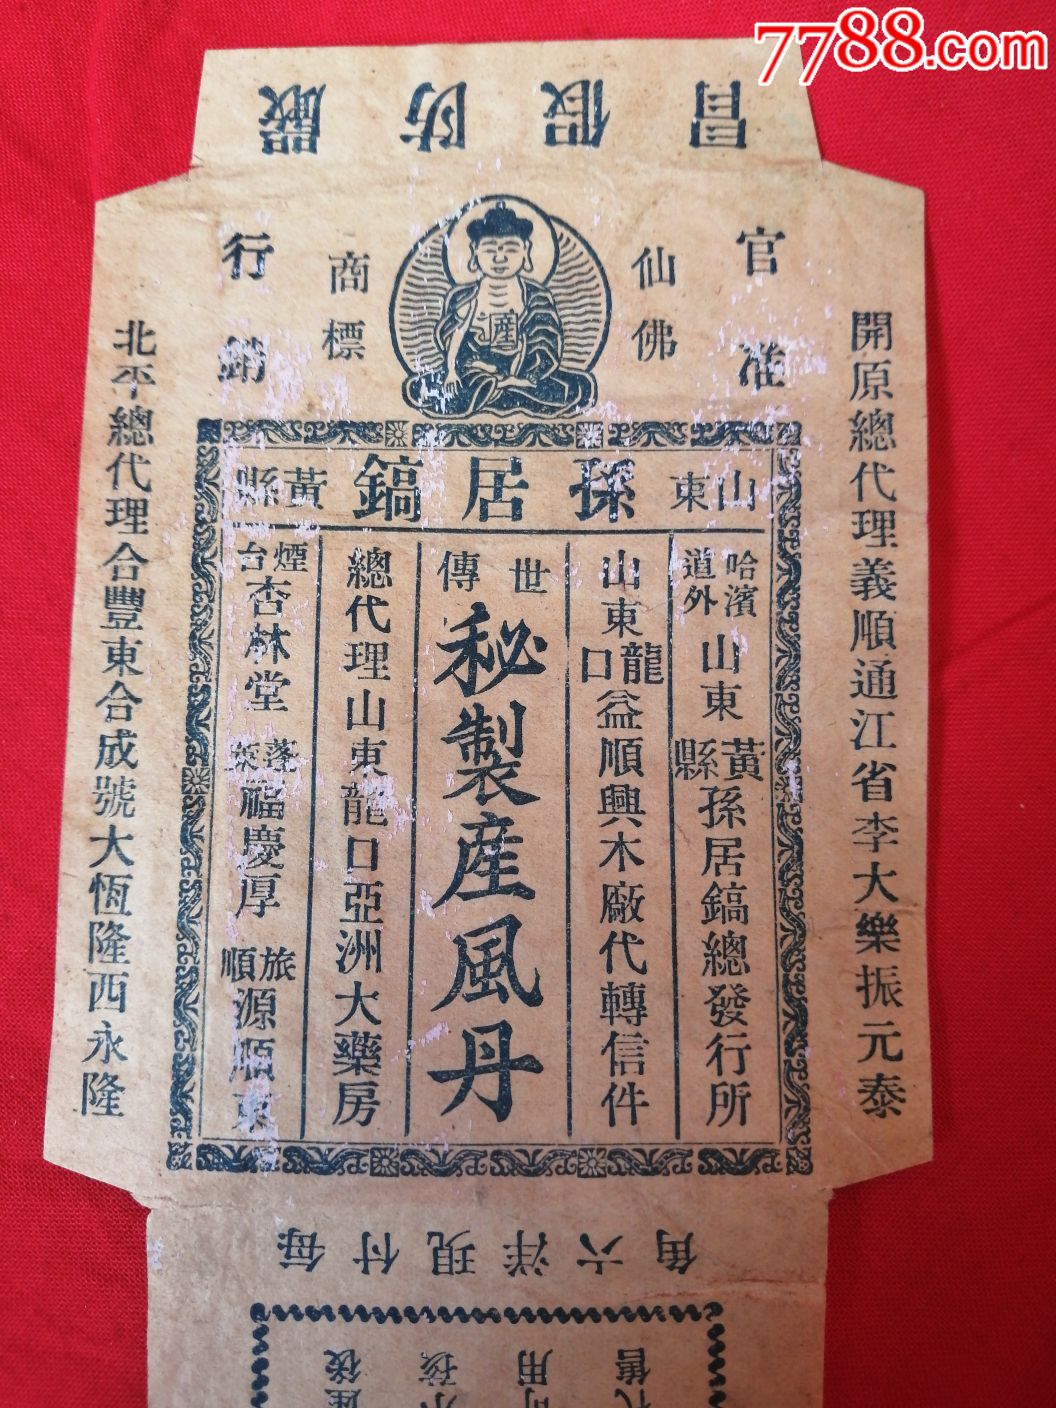 嚴防假冒
官准
行銷
仙佛
商標
產
開原總代理義順通江省李大樂振元泰
北平總代理合豐東合成號大恆隆西永隆
山東孫居鎬黃縣
哈濱道外山東黃縣孫居鎬總發行所
山東龍口益順興木廠代轉信件
世傳
秘製産風丹
總代理山東龍口亞洲大藥房
煙台杏林堂蓬萊福慶厚旅順源順東
每付現洋六角
後
孩
用
售
7788.com